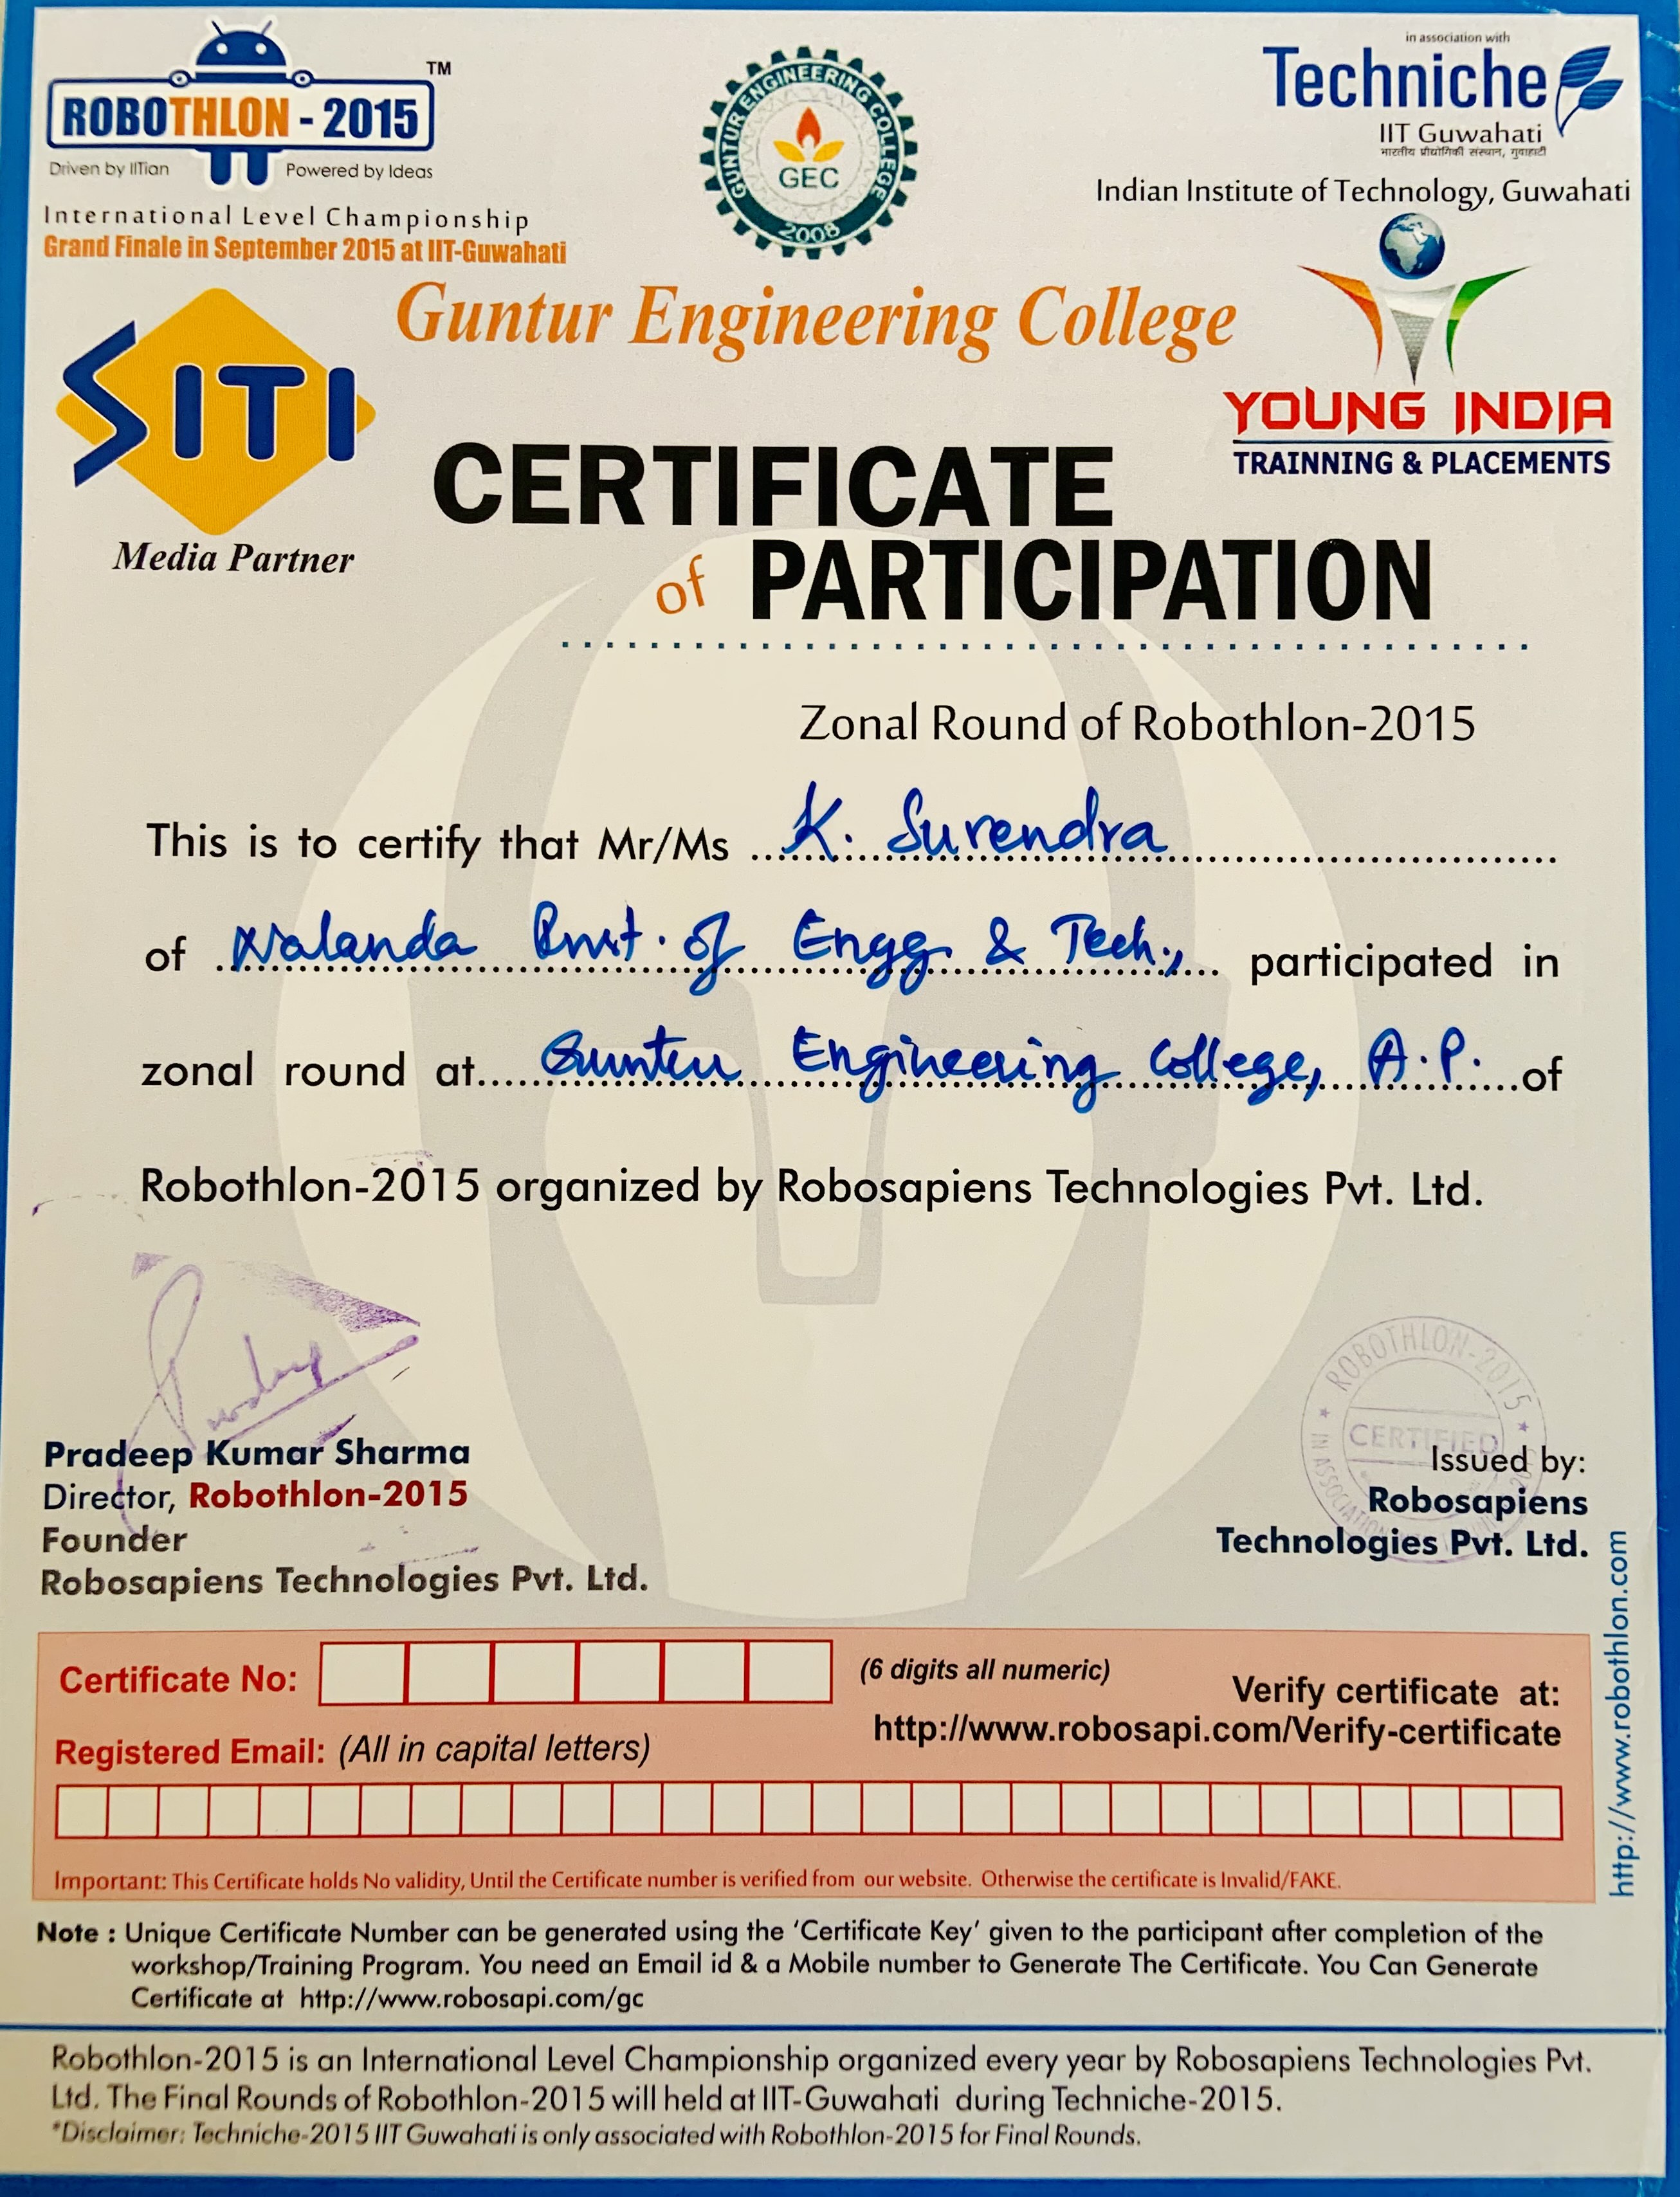 ROBOTHLON - 2015 TM
Driven by IITian Powered by Ideas
International Level Championship
Grand Finale in September 2015 at IIT-Guwahati
GUNTUR ENGINEERING COLLEGE
GEC
2008
in association with
Techniche
IIT Guwahati
भारतीय प्रौद्योगिकी संस्थान, गुवाहाटी
Indian Institute of Technology, Guwahati
SITI
Media Partner
Guntur Engineering College
YOUNG INDIA
TRAINNING & PLACEMENTS
CERTIFICATE
of PARTICIPATION
Zonal Round of Robothlon-2015
This is to certify that Mr/Ms K. Surendra
of Nalanda Inst. of Engg & Tech., participated in
zonal round at Guntur Engineering College, A.P. of
Robothlon-2015 organized by Robosapiens Technologies Pvt. Ltd.
Pradeep Kumar Sharma
Director, Robothlon-2015
Founder
Robosapiens Technologies Pvt. Ltd.
ROBOTHLON-2015
CERTIFIED
IN ASSOCIATION
Issued by:
Robosapiens
Technologies Pvt. Ltd.
http://www.robothlon.com
Certificate No: (6 digits all numeric)
Verify certificate at:
http://www.robosapi.com/Verify-certificate
Registered Email: (All in capital letters)
Important: This Certificate holds No validity, Until the Certificate number is verified from our website. Otherwise the certificate is Invalid/FAKE.
Note : Unique Certificate Number can be generated using the ‘Certificate Key’ given to the participant after completion of the
workshop/Training Program. You need an Email id & a Mobile number to Generate The Certificate. You Can Generate
Certificate at http://www.robosapi.com/gc
Robothlon-2015 is an International Level Championship organized every year by Robosapiens Technologies Pvt.
Ltd. The Final Rounds of Robothlon-2015 will held at IIT-Guwahati during Techniche-2015.
*Disclaimer: Techniche-2015 IIT Guwahati is only associated with Robothlon-2015 for Final Rounds.